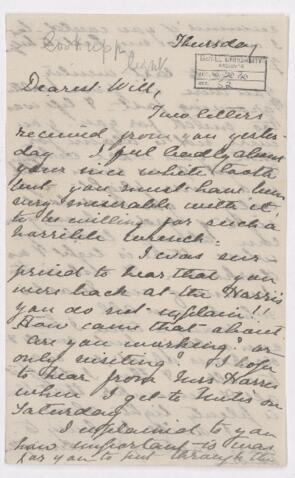 Thursday
McGILL UNIVERSITY
ARCHIVES
Dearest Will,
Two letters
received from you yester-
day I feel badly about
your nice white tooth
but you must have been
very miserable with it,
to be willing for such a
horrible wrench.
I was sur-
prised to hear that you
were back at the Harris
you do not explain!!
How came that about
are you working? or
only visiting? I hope
to hear from Mrs Harris
when I get to
Saturday
I explained to you
how important it was
for you to put through the